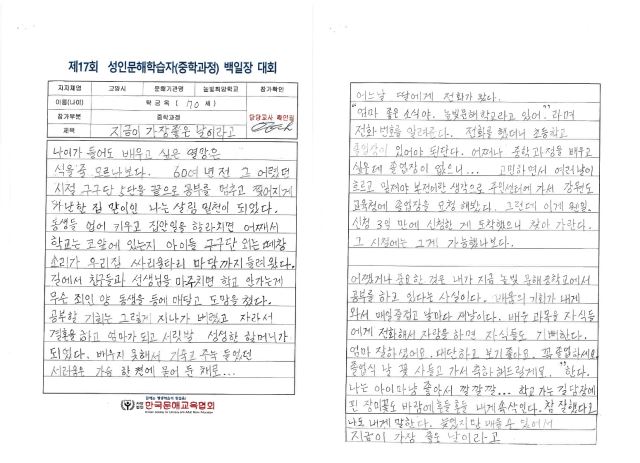 제17회 성인문해학습자(중학과정) 백일장 대회
지자체명 고양시 문해기관명 늘빛희망학교 참가확인
이름(나이) 학금옥 (70세)
참가부문 중학과정 담당교사 확인필
제목 지금이 가장좋은 날이라고
나이가 들어도 배우고 싶은 열망은
식을줄 모르나보다. 60여년전 그 어렸던
시절 구구단 5단을 끝으로 공부를 멈추고 찢어지게
가난한 집 맏이인 나는 살림 밑천이 되었다.
동생들 업어 키우고 집안일을 하라치면 어째서
학교는 코앞에 있는지 아이들 구구단 외는 떼창
소리가 우리집 싸리울타리 마당까지 들려왔다.
길에서 친구들과 선생님을 마주치면 학교 안가는게
무슨 죄인 양 동생을 등에 매달고 도망을 쳤다.
공부할 기회는 그렇게 지나가 버렸고 자라서
결혼을하고 엄마가 되고 서릿발 성성한 할머니가
되었다. 배우지 못해서 기울고 주눅 들었던
서러움은 가슴 한 켠에 묻어 둔 채로...
문해는 행복학습의 첫걸음!
한국문해교육협회
어느날 딸에게 전화가 왔다.
"엄마 좋은 소식야. 늘빛문해학교라고 있어" 라며
전화 번호를 알려준다. 전화를 했더니 초등학교
졸업장이 있어야 된단다. 어쩌나 중학과정을 배우고
싶은데 졸업장이 없으니... 고민하면서 여러날이
흐르고 밑져야 본전이란 생각으로 주민센터에 가서 강원도
교육청에 졸업장을 요청 해봤다. 그런데 이게 웬일.
신청 3일 만에 신청한 게 도착했으니 찾아 가란다.
그 시절에는 그게 가능했나보다.
어쨌거나 중요한 것은 내가 지금 늘빛 문해중학교에서
공부를 하고 있다는 사실이다. 배움의 기회가 내게
와서 매일즐겁고 날마다 새날이다. 배운 과목을 자식들
에게 전화해서 자랑을 하면 자식들도 기뻐한다.
엄마 잘하셨어요. 대단하고 보기좋아요. 꼭 졸업하세요.
졸업식 날 꽃 사들고 가서 축하해드릴게요. "한다.
나는 아이마냥 좋아서 깔깔깔... 학교가는 길 담장에
핀 장미꽃도 바람에 흔들흔들 내게 속삭인다. 참 잘했다고
나도 내게 말한다. 늦었지만 배울수 있어서
지금이 가장 좋은 날이라고